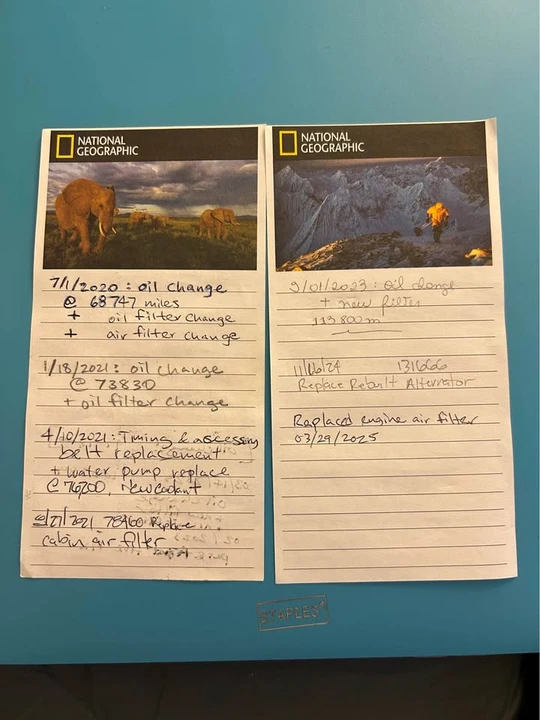 NATIONAL
GEOGRAPHIC
7/1/2020 : oil change
@ 68747 miles
+ oil filter change
+ air filter change
1/18/2021 : oil change
@ 73830
+ oil filter change
4/10/2021 : Timing &
belt replacement
+ water pump replace
@ 76200, New Coolant
/2021 78460 Replace
cabin air filter
NATIONAL
GEOGRAPHIC
9/01/2023 : oil change
+ new filter
113 800 m
11/06/24 131666
Replace Rebuilt Alternator
Replaced engine air filter
03/29/2025
STAPLES